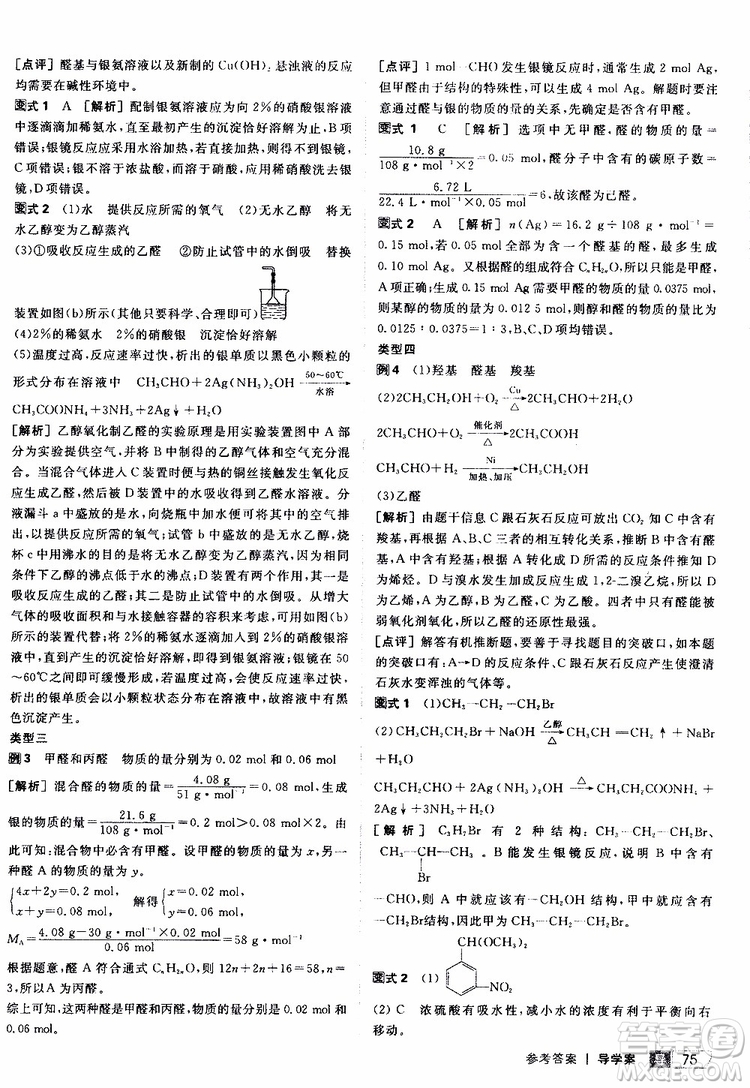 [点评] 醛基与银氨溶液以及新制的 Cu(OH)₂ 悬浊液的反应
均需要在碱性环境中。
变式 1 A [解析] 配制银氨溶液应为向 2%的硝酸银溶液
中逐滴滴加稀氨水,直至最初产生的沉淀恰好溶解为止,B项
错误;银镜反应应采用水浴加热,直接加热,则得不到银镜,
C项错误;银不溶于浓盐酸,而溶于硝酸,可用稀硝酸洗去银
镜,D项错误。
变式 2 (1)水 提供反应所需的氧气 (2)无水乙醇 将无
水乙醇变为乙醇蒸汽
(3)①吸收反应生成的乙醛 ②防止试管中的水倒吸 替换
装置如图(b)所示
(4)2%的稀氨水 2%的硝酸银 沉淀恰好溶解
(5)温度过高,银镜反应过快,析出的银单质以黑色小颗粒的
形式分布在溶液中 CH₃CHO+2Ag(NH₃)₂OH 50~60℃ 水浴 →
CH₃COONH₄+2Ag↓+3NH₃+H₂O
[解析] 乙醇氧化制乙醛的实验原理是用实验装置图中 A 部
分为实验提供空气,并与 B 部分产生的乙醇和水的蒸汽混
混合。当混合气体进入到 C 装置时便与热的铜丝接触发生氧化反
应生成乙醛。在 D 装置中的水吸收了乙醛后形成乙醛水溶液。分
液漏斗 a 中盛放的是水,向烧瓶中加水时将其中的空气排
出,提供反应所需的氧气;试管 b 中盛放的是无水乙醇,烧
杯 c 中用沸水的目的是将无水乙醇变为乙醇蒸汽,因为相同
条件下乙醇的沸点低于水的沸点。D 装置有两个作用:其一是
吸收反应生成的乙醛;其二是防止试管中的水倒吸。从增大
气体的吸收面积和与水接触容器的容积来考虑,可用如图(b)
所示的装置代替;将 2%的稀氨水逐滴加入到 2%的硝酸银溶
液中,直至最初产生的沉淀恰好溶解为止;银镜反应在 50
~60℃之间即可缓慢生成银镜,但若温度过高,反应过快,
析出的银单质会以小颗粒状态分布在溶液中,故溶液中有黑
色沉淀产生。
类型三
例 3 甲醛和丙醛 物质的量分别为 0.02 mol 和 0.06 mol
[解析] 混合醛的物质的量为 4.08 g / 51 g·mol⁻¹ =0.08 mol,生成
银的物质的量为 21.6 g / 108 g·mol⁻¹ =0.2 mol>0.08 mol×2。
由此可知:混合物中必含有甲醛。设甲醛的物质的量为 x
mol,另一种醛 A 的物质的量为 y mol。
{4x+2y=0.2 mol x+y=0.08 mol 解得 {x=0.02 mol y=0.06 mol
M_A= (4.08 g−30 g·mol⁻¹×0.02 mol) / 0.06 mol =58 g·mol⁻¹
根据题意,醛 A 的通式为 CₙH₂ₙO,则 12n+2n+16=58,n=3
综上可知,这两种醛是甲醛和丙醛,物质的量分别为 0.02 mol 和
0.06 mol。
[点评] 1 mol —CHO 发生银镜反应时,通常生成 2 mol Ag,
但甲醛由于结构的特殊性,可生成 4 mol Ag。解题时要
注意醛与银的物质的量的关系,先确定是否有甲醛。
变式 1 C [解析] 选项中无甲醛,醛的物质的量为
10.8 g / (108 g·mol⁻¹×2) =0.05 mol,醛分子中含有的碳原子数
6.72 L / (22.4 L·mol⁻¹×0.05 mol) =6,故该醛为己醛。
变式 2 A [解析] n(Ag)=16.2 g÷108 g·mol⁻¹=
0.15 mol,若 0.05 mol 全部为含一个醛基的醛,则生成 Ag
0.10 mol。又根据醛的组成符合 CₙH₂ₙO,则该醛为甲醛,故
A项正确;0.15 mol Ag 需要甲醛的物质的量为 0.0375 mol,
则某醇的物质的量为 0.0125 mol,醇和醛的物质的量比为
0.0125∶0.0375=1∶3,B、C、D项均错误。
类型四
例 4 (1)羟基 醛基 羧基
(2)2CH₃CH₂OH+O₂ Cu △ →2CH₃CHO+2H₂O
2CH₃CHO+O₂ 催化剂 △ →2CH₃COOH
CH₃CHO+H₂ Ni 加热、加压 →CH₃CH₂OH
(3)乙醛
[解析] 由题干信息 C 跟石灰石反应可放出 CO₂ 知 C 含有
羧基,再根据 A、B、C、D 的相互转化关系,推断 B 中含有
醛基,A 中含有羟基;根据 A 转化成 D 的反应条件,推断 D
为烯烃。D 与溴水发生加成反应生成 1,2-二溴乙烷,所以 D
为乙烯,A 为乙醇,B 为乙醛,C 为乙酸。四者中只有醛能被
弱氧化剂氧化,所以它的还原性最强。
[点评] 解答有机推断题,要善于寻找题目的突破口,如本题
中的突破口:A→D 的反应条件、C跟石灰石反应产生使澄清
石灰水变浑浊的气体等。
变式 1 (1)CH₃—CH₂—CH₂Br
(2) CH₃CH₂CH₂Br + NaOH 乙醇 △ → CH₃CH═CH₂↑ + NaBr
+H₂O
CH₃CH₂CHO+2Ag(NH₃)₂OH △ →CH₃CH₂COONH₄+
2Ag↓+3NH₃+H₂O
[解析] C₃H₇Br 有 2 种结构:CH₃—CH₂—CH₂Br、
CH₃—CH—CH₃。B 能发生银镜反应,说明 B 中含有
Br
—CHO,则 A 中就应有—CH₂OH 结构,甲中应有—CH₂Br
结构,因此甲为 CH₃—CH₂—CH₂Br。
CH(OCH₃)₂
变式 2 (1) NO₂
(2) C 浓硫酸有吸水性,减小水的浓度有利于平衡向右
移动。
参考答案 导学案 75